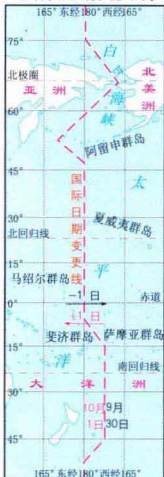 165°东经180°西经165°
75°
白
令
海
峡
北极圈
亚洲
北美洲
60°
阿留申群岛
45°
国际日期变更线
太
30°
夏威夷群岛
北回归线
15°
马绍尔群岛
平
-1 日
0°
赤道
+1 日
斐济群岛
萨摩亚群岛
15°
洋
南回归线
大洋洲
30°
10月9月
1日30日
45°
165°东经180°西经165°